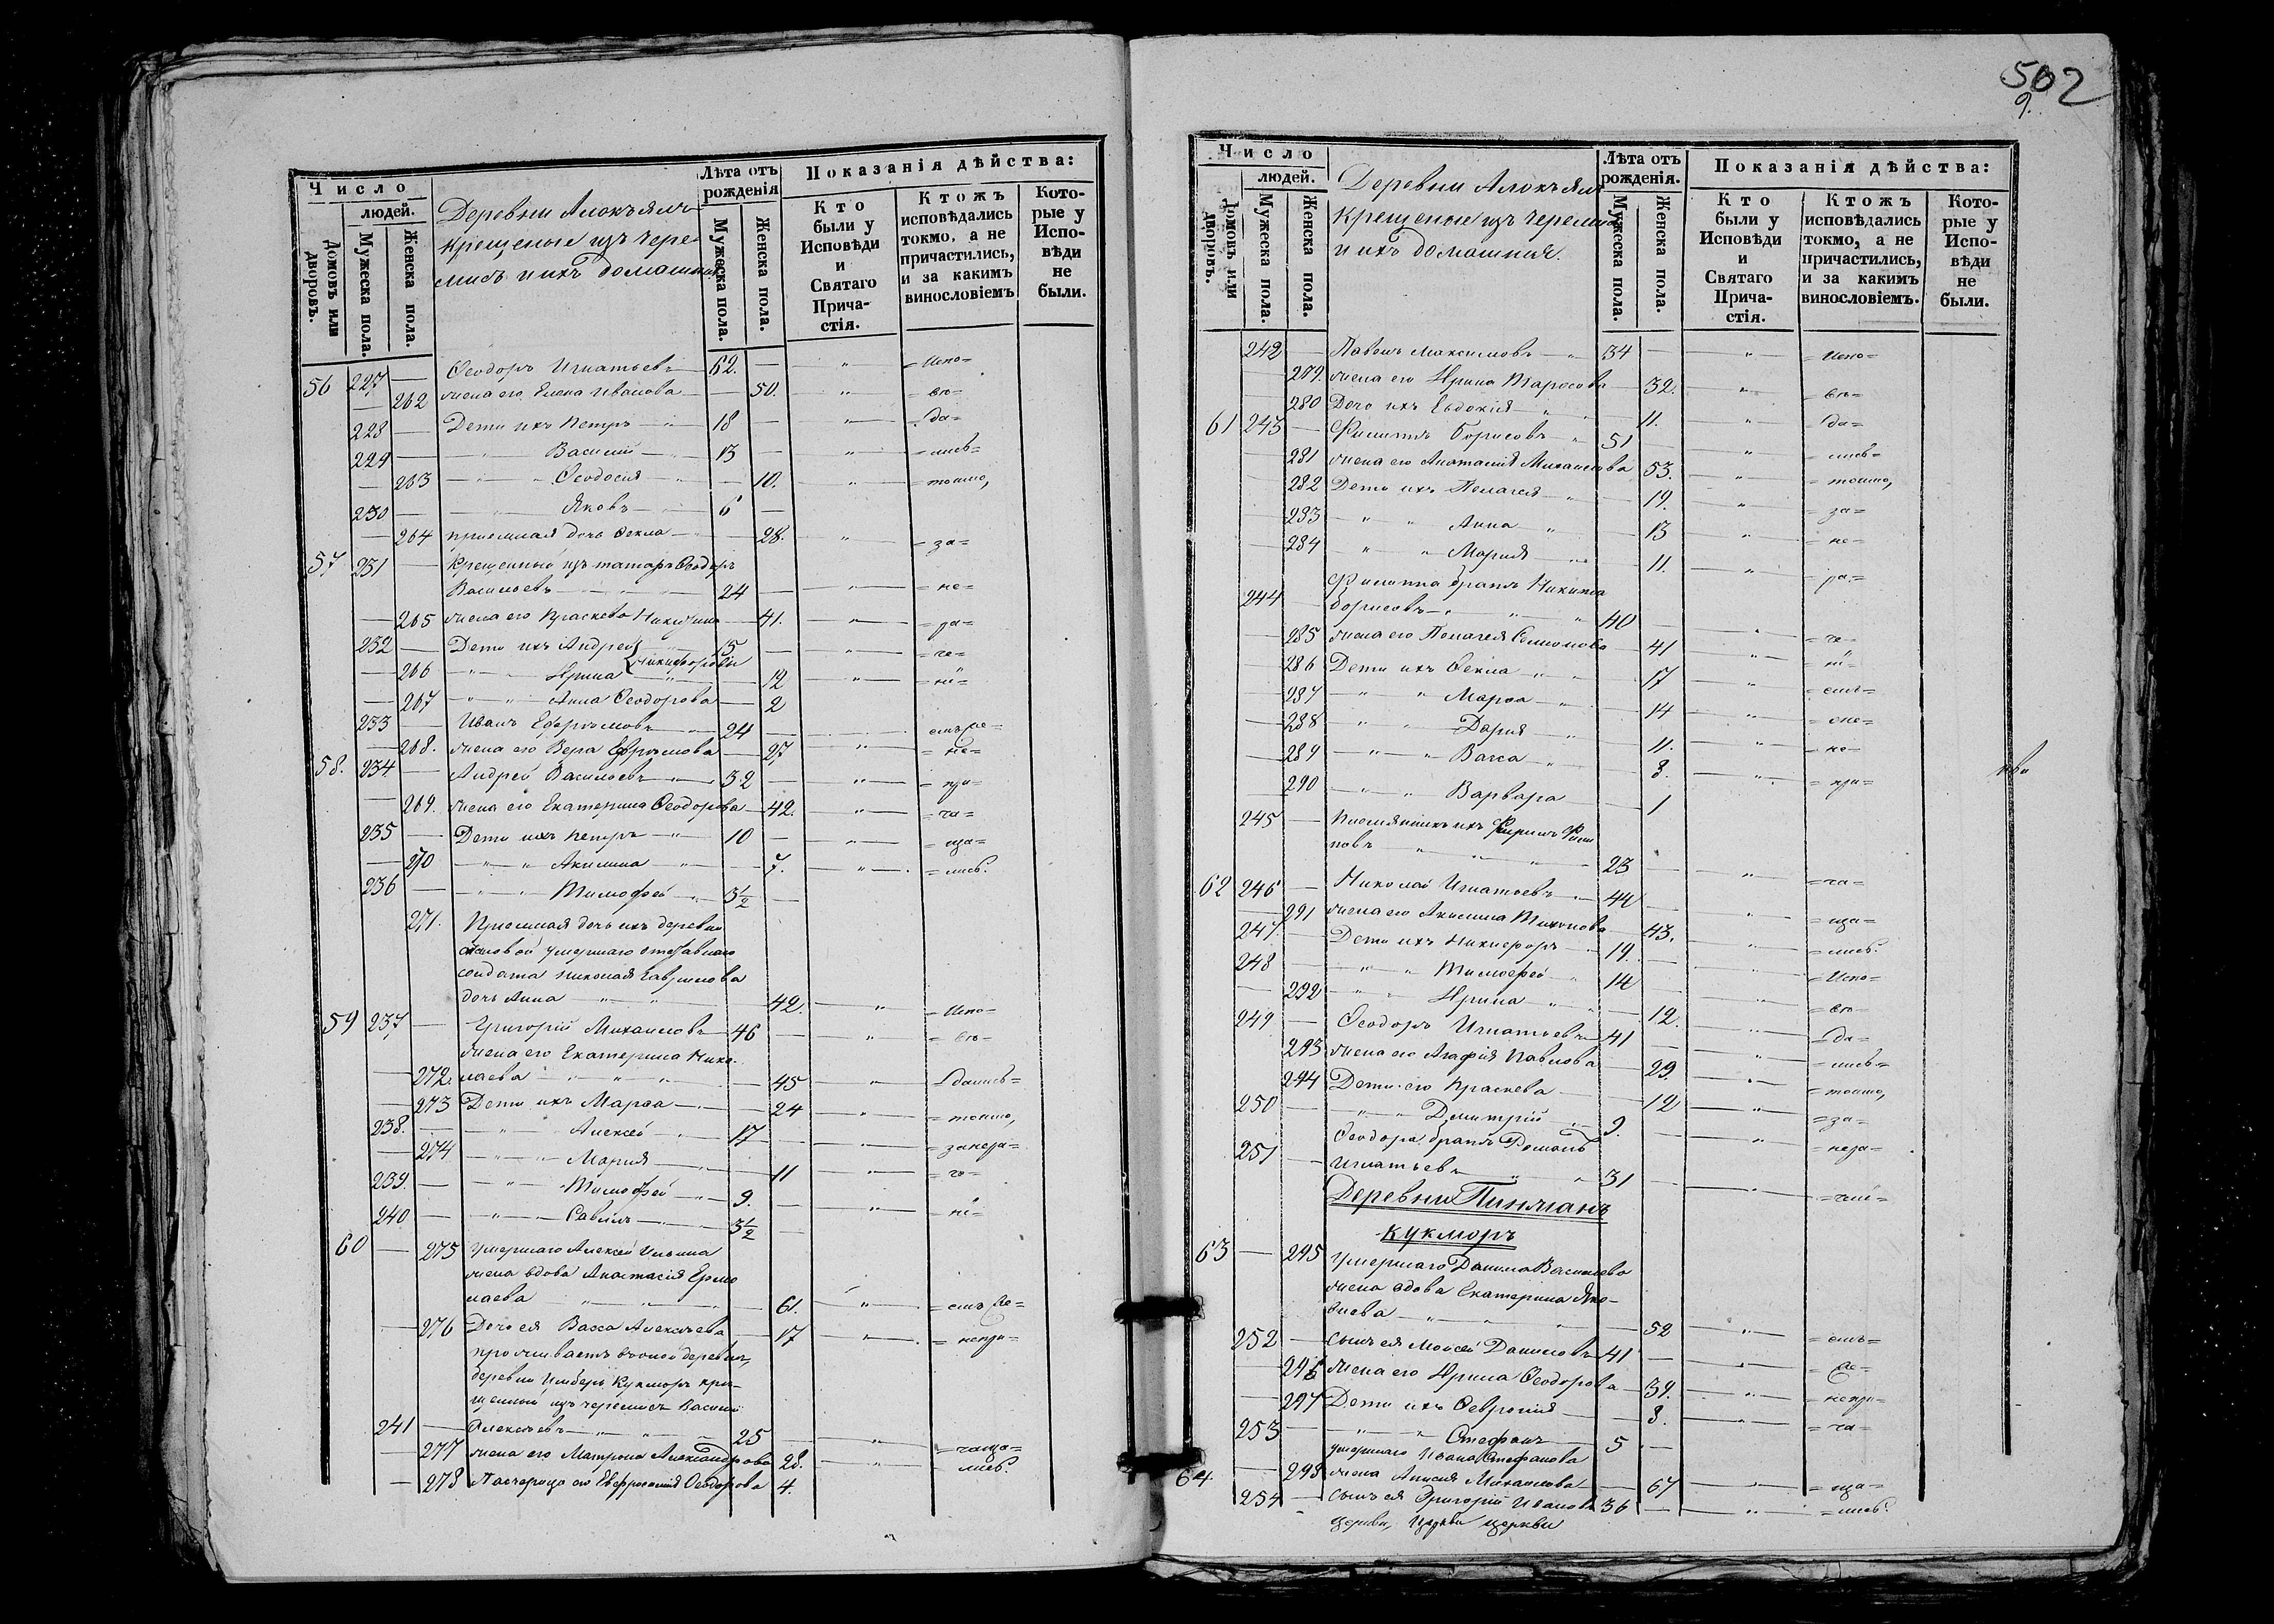 Число
людей.
Домовъ или дворовъ.
Мужеска пола.
Женска пола.
Деревни Алокъялъ
крещеные изъ чере-
мисъ и ихъ домашнія
Лѣта отъ рожденія
Мужеска пола.
Женска пола.
Показанія дѣйства:
Кто были у Исповѣди и Святаго Прича-стія.
Ктожъ исповѣдались токмо, а не причастились, и за какимъ винословіемъ
Кото-рые у Испо-вѣди не были.
56 227 — Ѳеодоръ Игнатьевъ 62. — " = Испо=
— 262 жена его Елена Иванова — 50. " = вѣ=
228 — Дети ихъ Петръ 18 — " = да=
229 — " Василий 13 — " = лись=
— 263 " " Ѳеодосия — 10. " = токмо,
230 — " Яковъ 6 —
— 264 приемная дочь Ѳекла — 28. " = за=
57 231 — Крещенный изъ татаръ Ѳеодоръ
Васильевъ 24 — " = не=
— 265 жена его Праскева Никитина — 41. " = ра=
232 — Дети ихъ Андрей 15 — " = че=
Никифоровы
— 266 " Ирина — 12 " = ні=
— 267 " " Анна Ѳеодорова — 2
233 — Иванъ Ефремовъ 24 —
— 268. жена его Вера Ефремова — 27 " = не=
58. 234 — Андрей Васильевъ 32 — " = при=
— 269. жена его Екатерина Ѳеодорова — 42. " = ча=
235 — Дети ихъ Петръ 10 — " = ща=
— 270 " " Акилина — 7. " = лись.
236 — " " Тимофей 3 1/2 —
271. Приемная дочь ихъ деревни
умершаго отставнаго
солдата Николая Гаврилова
дочь Анна " " 42. " = Испо=
59 237 — Григорий Михаиловъ 46 — " = вѣ=
жена его Екатерина Нико-
— 272. лаева — 45 " = дались=
— 273 Дети ихъ Марѳа — 24 " = токмо,
238. — " Алексей 17 — " = занера=
— 274 " " Мария — 11 " = че=
239. — " Тимофей 9. — " = ні=
240 — " " Савелъ 3 1/2 —
60 — 275 умершаго Алексей Ильина
жена вдова Анастасія Ермо
лаева — 61. " = емъ
— 276 Дочь ея Васса Алексеева — 17 " = непри=
проживаетъ въ оной деревни,
деревни Имберь Кукморъ кре-
щенный изъ черемисъ Василий
241 — Алексеевъ 25 — " = чаща=
— 277 жена его Матрона Александрова 28. " лись.
— 278 Падчерица его Евфросиния Ѳеодорова 4.
502
9.
Число
людей.
Домовъ или дворовъ.
Мужеска пола.
Женска пола.
Деревни Алокъялъ
крещеные изъ черемисъ
и ихъ домашнія.
Лѣта отъ рожденія.
Мужеска пола.
Женска пола.
Показанія дѣйства:
Кто были у Исповѣди и Святаго Прича-стія.
Ктожъ исповѣдались токмо, а не причастились, и за какимъ винословіемъ.
Кото-рые у Испо-вѣди не были.
242 — Павелъ Максимовъ 34 — " = Испо=
— 279. жена его Ирина Тарасова — 32. " = вѣ=
— 280 Дочь ихъ Евдокия — 11. " = да=
61 243 — Филиппъ Борисовъ 51 — " = лись=
— 281 жена его Анастасия Михаилова 53. " = токмо,
— 282 Дети ихъ Пелагея — 19. " = за=
— 283 " " Анна — 13 " = не=
— 284 " " Мария — 11. " = ра=
Филиппа братъ Никита
244 — Борисовъ 40 — " = че=
— 285 жена его Пелагея Семионова — 41 " = ні=
— 286 Дети ихъ Ѳекла — 17 " = емъ=
— 287 " " Марѳа — 14 "
— 288 " " Дария — 11. " = не=
— 289 " " Васса — 8. " = при=
— 290 " " Варвара — 1
245 — Племянникъ ихъ Филип
повъ " 23 — " = ча=
62 246 — Николай Игнатьевъ 44 — " = ща=
— 291 жена его Акилина Тихонова — 43. " = лись.
247 — Дети ихъ Никифоръ 19. — = Испо=
248 — " " Тимофей 14 —
— 292 " " Ирина — 12. " = вѣ=
249 — Ѳеодоръ Игнатьевъ 41 — " = да=
— 293 жена его Агафия Павлова — 29. " = лись=
— 294 Дети его Праскева — 12 " = токмо,
250 — " " Димитрій 9. — = за=
Ѳеодора братъ Романъ
251 — Игнатьевъ " 31 — " = нера=
= чені=
Деревни Пинжанъ
Кукморъ
63 — 295 умершаго Данила Васильева
жена вдова Екатерина Яко-
влева — 52 " = емъ=
252 — Сынъ ея Мойсей Даниловъ 41 —
— 296 жена его Ирина Ѳеодорова — 39. " = непри=
— 297 Дети ихъ Ѳеврония — 8. " = ча=
253 — " " Стефанъ 5 —
умершаго Ивана Стефанова
64 — 298 жена Анисия Михаилова — 67 " = ща=
254 — Сынъ ея Григорій Ивановъ 36 — " = лись.
церкви